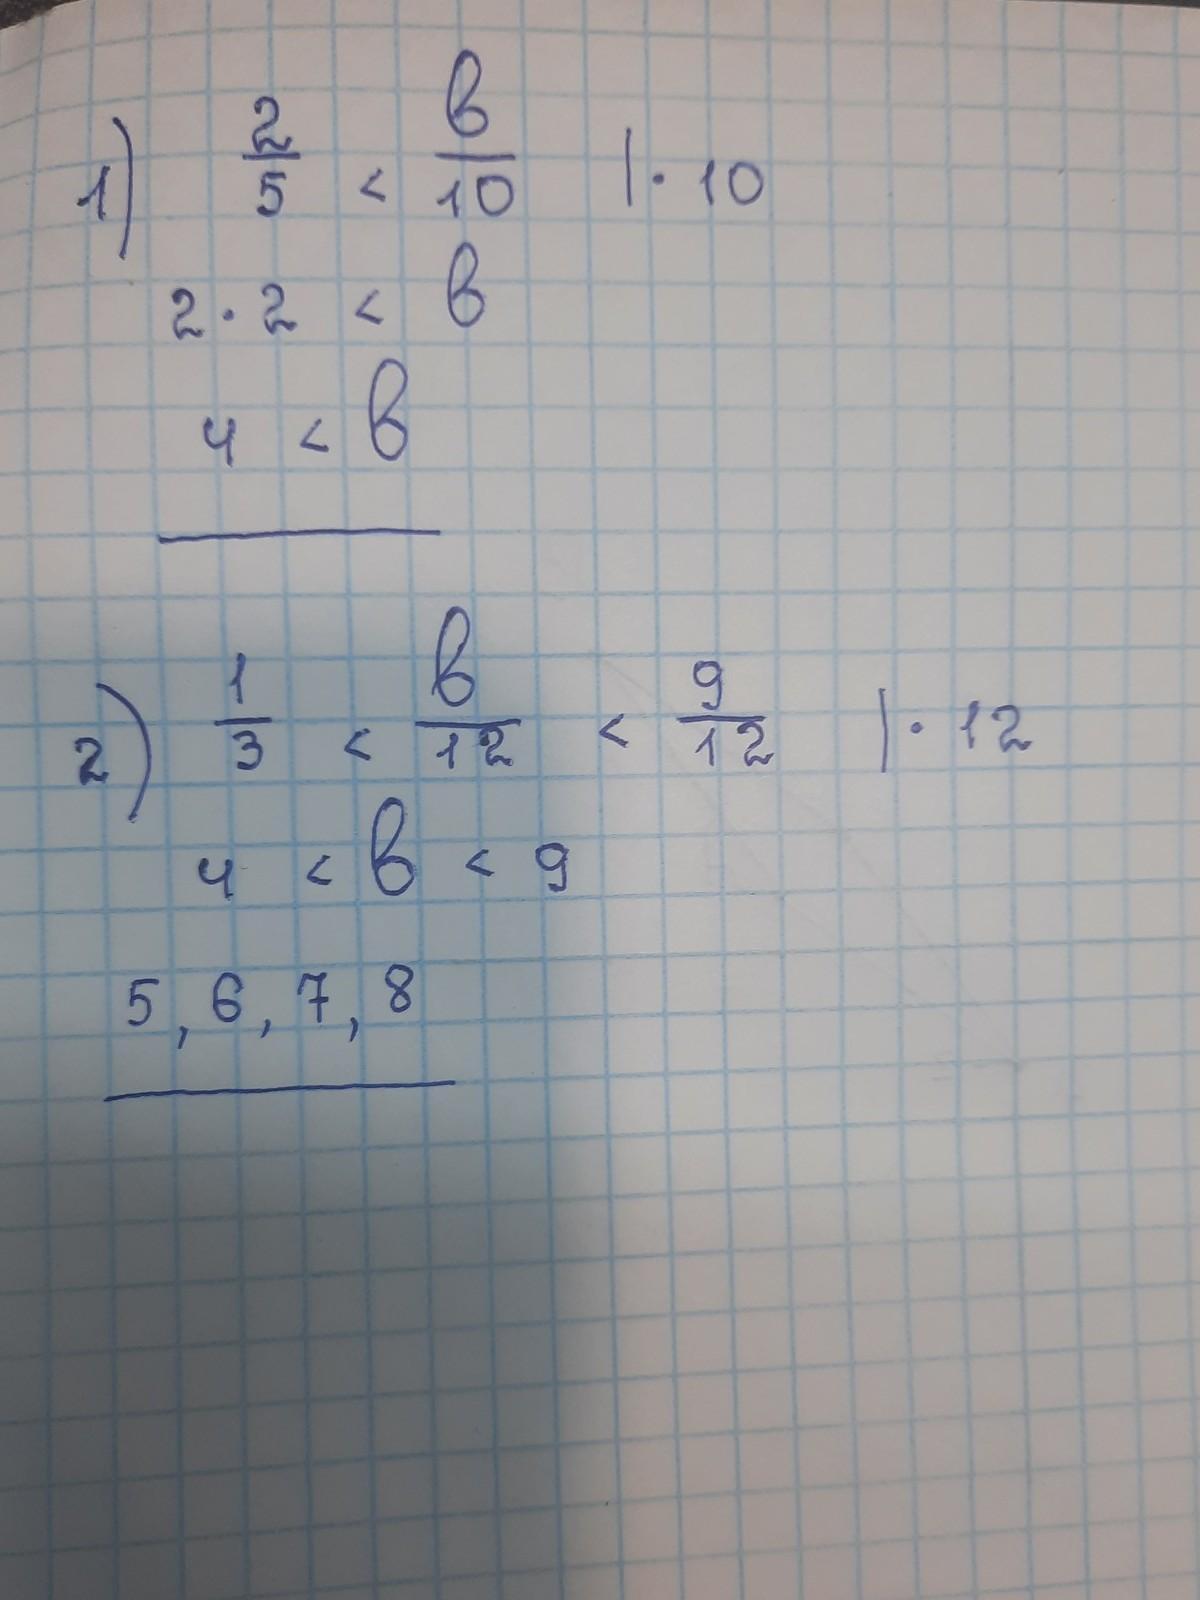 1) 2/5 < в/10 | · 10
2 · 2 < в
4 < в
2) 1/3 < в/12 < 9/12 | · 12
4 < в < 9
5, 6, 7, 8